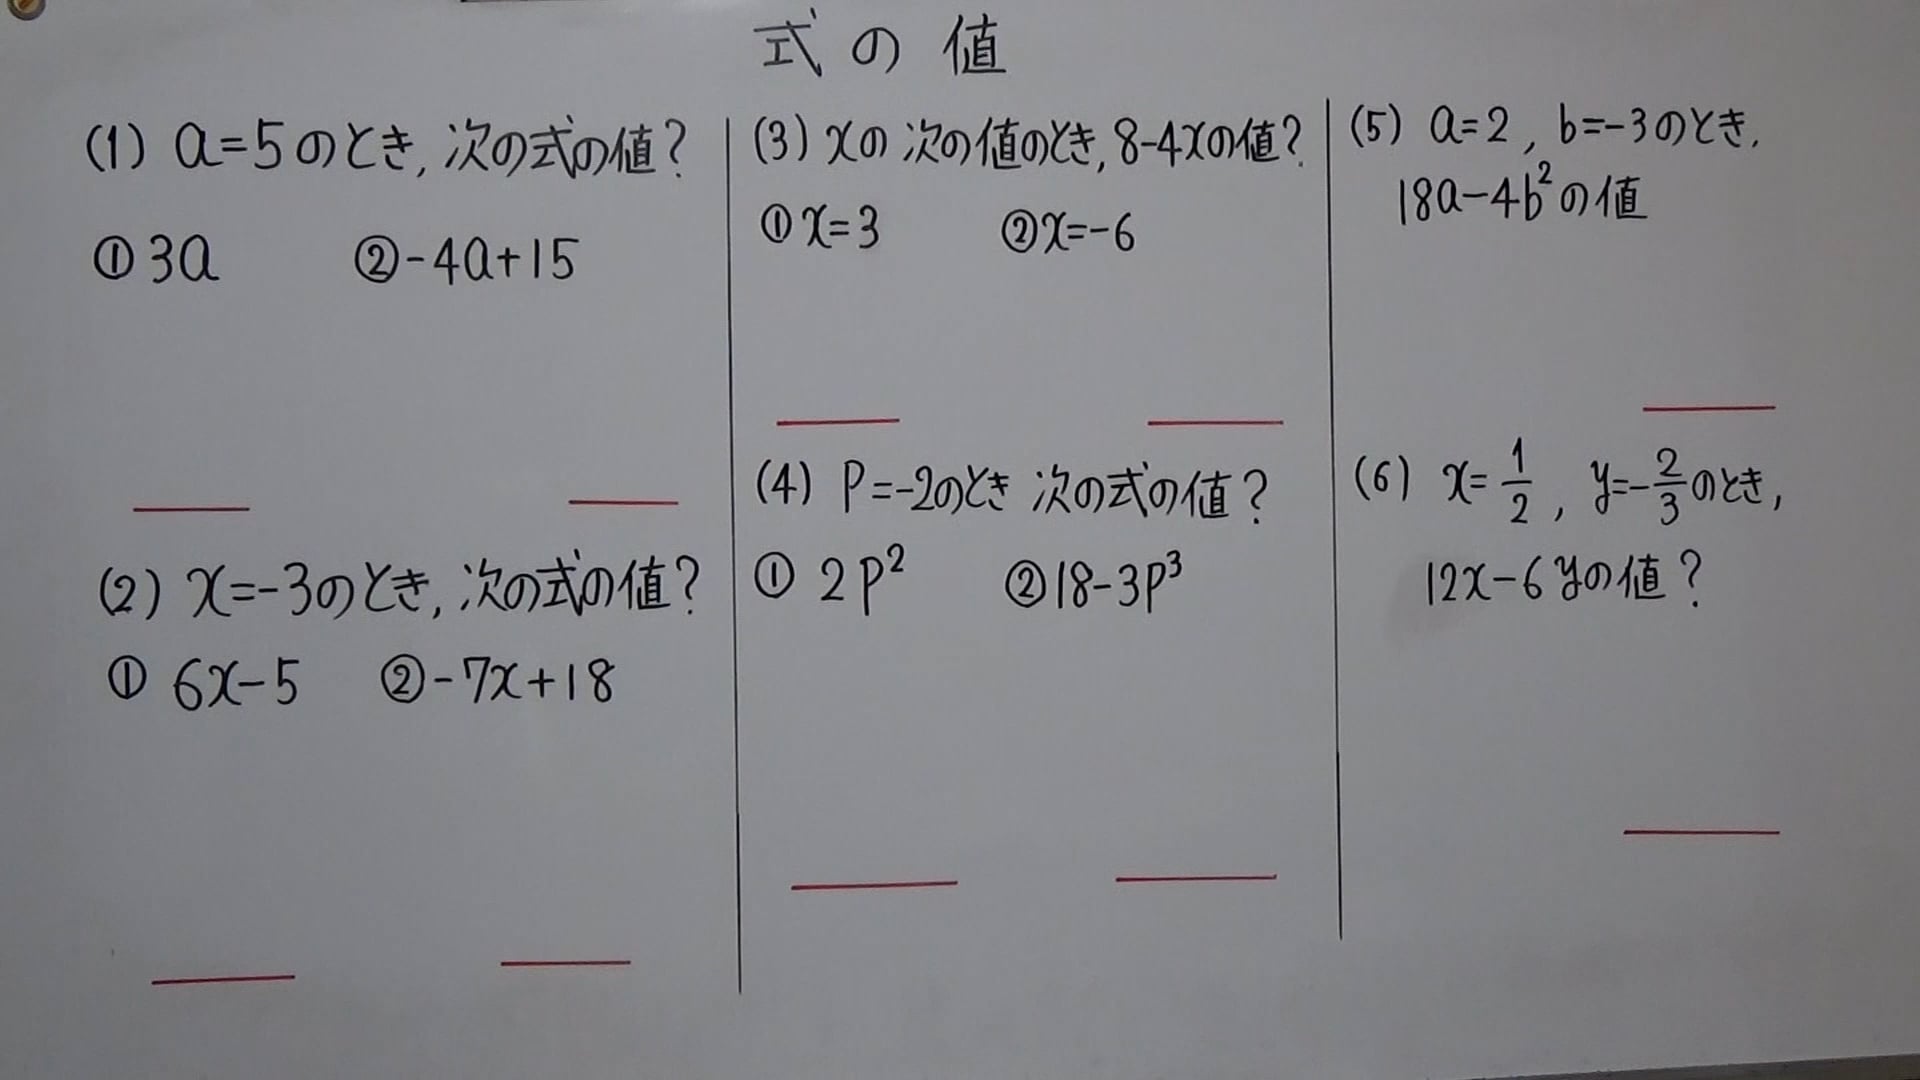 式の値
(1) a=5のとき, 次の式の値?
① 3a ② -4a+15
(2) x=-3のとき, 次の式の値?
① 6x-5 ② -7x+18
(3) xの次の値のとき, 8-4xの値?
① x=3 ② x=-6
(4) P=-2のとき 次の式の値?
① 2p² ② 18-3p³
(5) a=2, b=-3のとき,
18a-4b²の値
(6) x=1/2, y=-2/3のとき,
12x-6yの値?